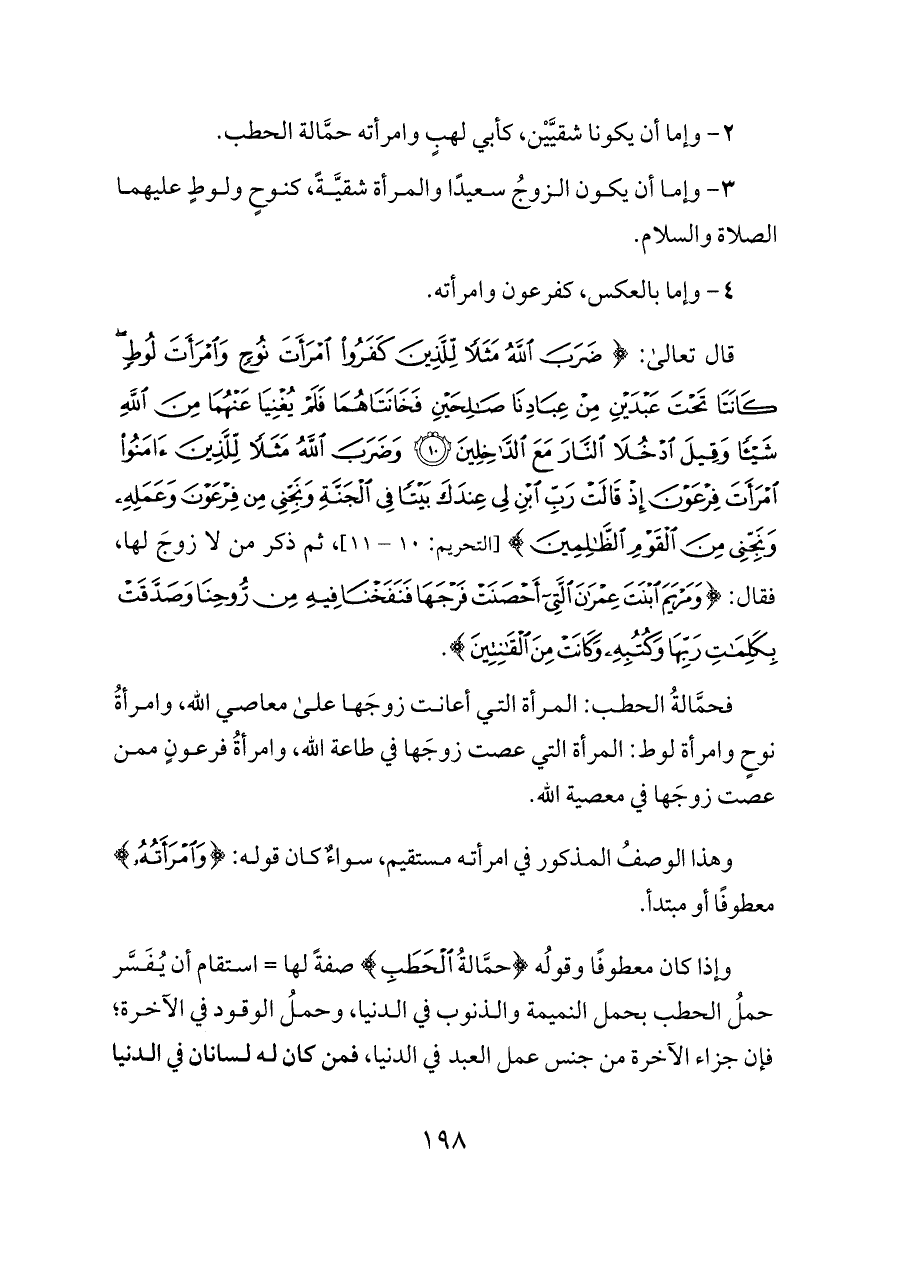 ٢- وإما أن يكونا شقيَّيْن، كأبي لهبٍ وامرأته حمَّالة الحطب.
٣- وإما أن يكون الزوجُ سعيدًا والمرأة شقيَّةً، كنوحٍ ولوطٍ عليهما
الصلاة والسلام.
٤- وإما بالعكس، كفرعون وامرأته.
قال تعالىٰ: ﴿ ضَرَبَ ٱللَّهُ مَثَلًا لِّلَّذِينَ كَفَرُوا۟ ٱمْرَأَتَ نُوحٍ وَٱمْرَأَتَ لُوطٍ ۖ
كَانَتَا تَحْتَ عَبْدَيْنِ مِنْ عِبَادِنَا صَـٰلِحَيْنِ فَخَانَتَاهُمَا فَلَمْ يُغْنِيَا عَنْهُمَا مِنَ ٱللَّهِ
شَيْـًٔا وَقِيلَ ٱدْخُلَا ٱلنَّارَ مَعَ ٱلدَّٰخِلِينَ ۝١٠ وَضَرَبَ ٱللَّهُ مَثَلًا لِّلَّذِينَ ءَامَنُوا۟
ٱمْرَأَتَ فِرْعَوْنَ إِذْ قَالَتْ رَبِّ ٱبْنِ لِى عِندَكَ بَيْتًا فِى ٱلْجَنَّةِ وَنَجِّنِى مِن فِرْعَوْنَ وَعَمَلِهِۦ
وَنَجِّنِى مِنَ ٱلْقَوْمِ ٱلظَّـٰلِمِينَ ﴾ [التحريم: ١٠ – ١١]، ثم ذكر من لا زوجَ لها،
فقال: ﴿ وَمَرْيَمَ ٱبْنَتَ عِمْرَٰنَ ٱلَّتِىٓ أَحْصَنَتْ فَرْجَهَا فَنَفَخْنَا فِيهِ مِن رُّوحِنَا وَصَدَّقَتْ
بِكَلِمَـٰتِ رَبِّهَا وَكُتُبِهِۦ وَكَانَتْ مِنَ ٱلْقَـٰنِتِينَ ﴾.
فحمَّالةُ الحطب: المرأة التي أعانت زوجَها علىٰ معاصي الله، وامرأةُ
نوحٍ وامرأة لوط: المرأة التي عصت زوجَها في طاعة الله، وامرأةُ فرعونٍ ممن
عصت زوجَها في معصية الله.
وهذا الوصفُ المذكور في امرأته مستقيم، سواءٌ كان قوله: ﴿ وَٱمْرَأَتُهُۥ ﴾
معطوفًا أو مبتدأ.
وإذا كان معطوفًا وقولُه ﴿ حمَّالةُ ٱلْحَطَبِ ﴾ صفةً لها = استقام أن يُفَسَّر
حملُ الحطب بحمل النميمة والذنوب في الدنيا، وحملُ الوقود في الآخرة؛
فإن جزاء الآخرة من جنس عمل العبد في الدنيا، فمن كان له لسانان في الدنيا
١٩٨